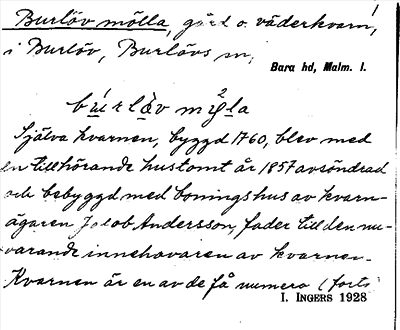 Burlöv mölla, gård o. väderkvarn,
i Burlöv, Burlövs sn,
Bara hd, Malm. l.
Själva kvarnen, byggd 1760, blev med
en tillhörande hustomt år 1857 avsöndrad
och bebyggd med boningshus av kvarn-
ägaren Jakob Andersson, fader till den nu-
varande innehavaren av kvarnen.
Kvarnen är en av de få numera (forts
I. INGERS 1928